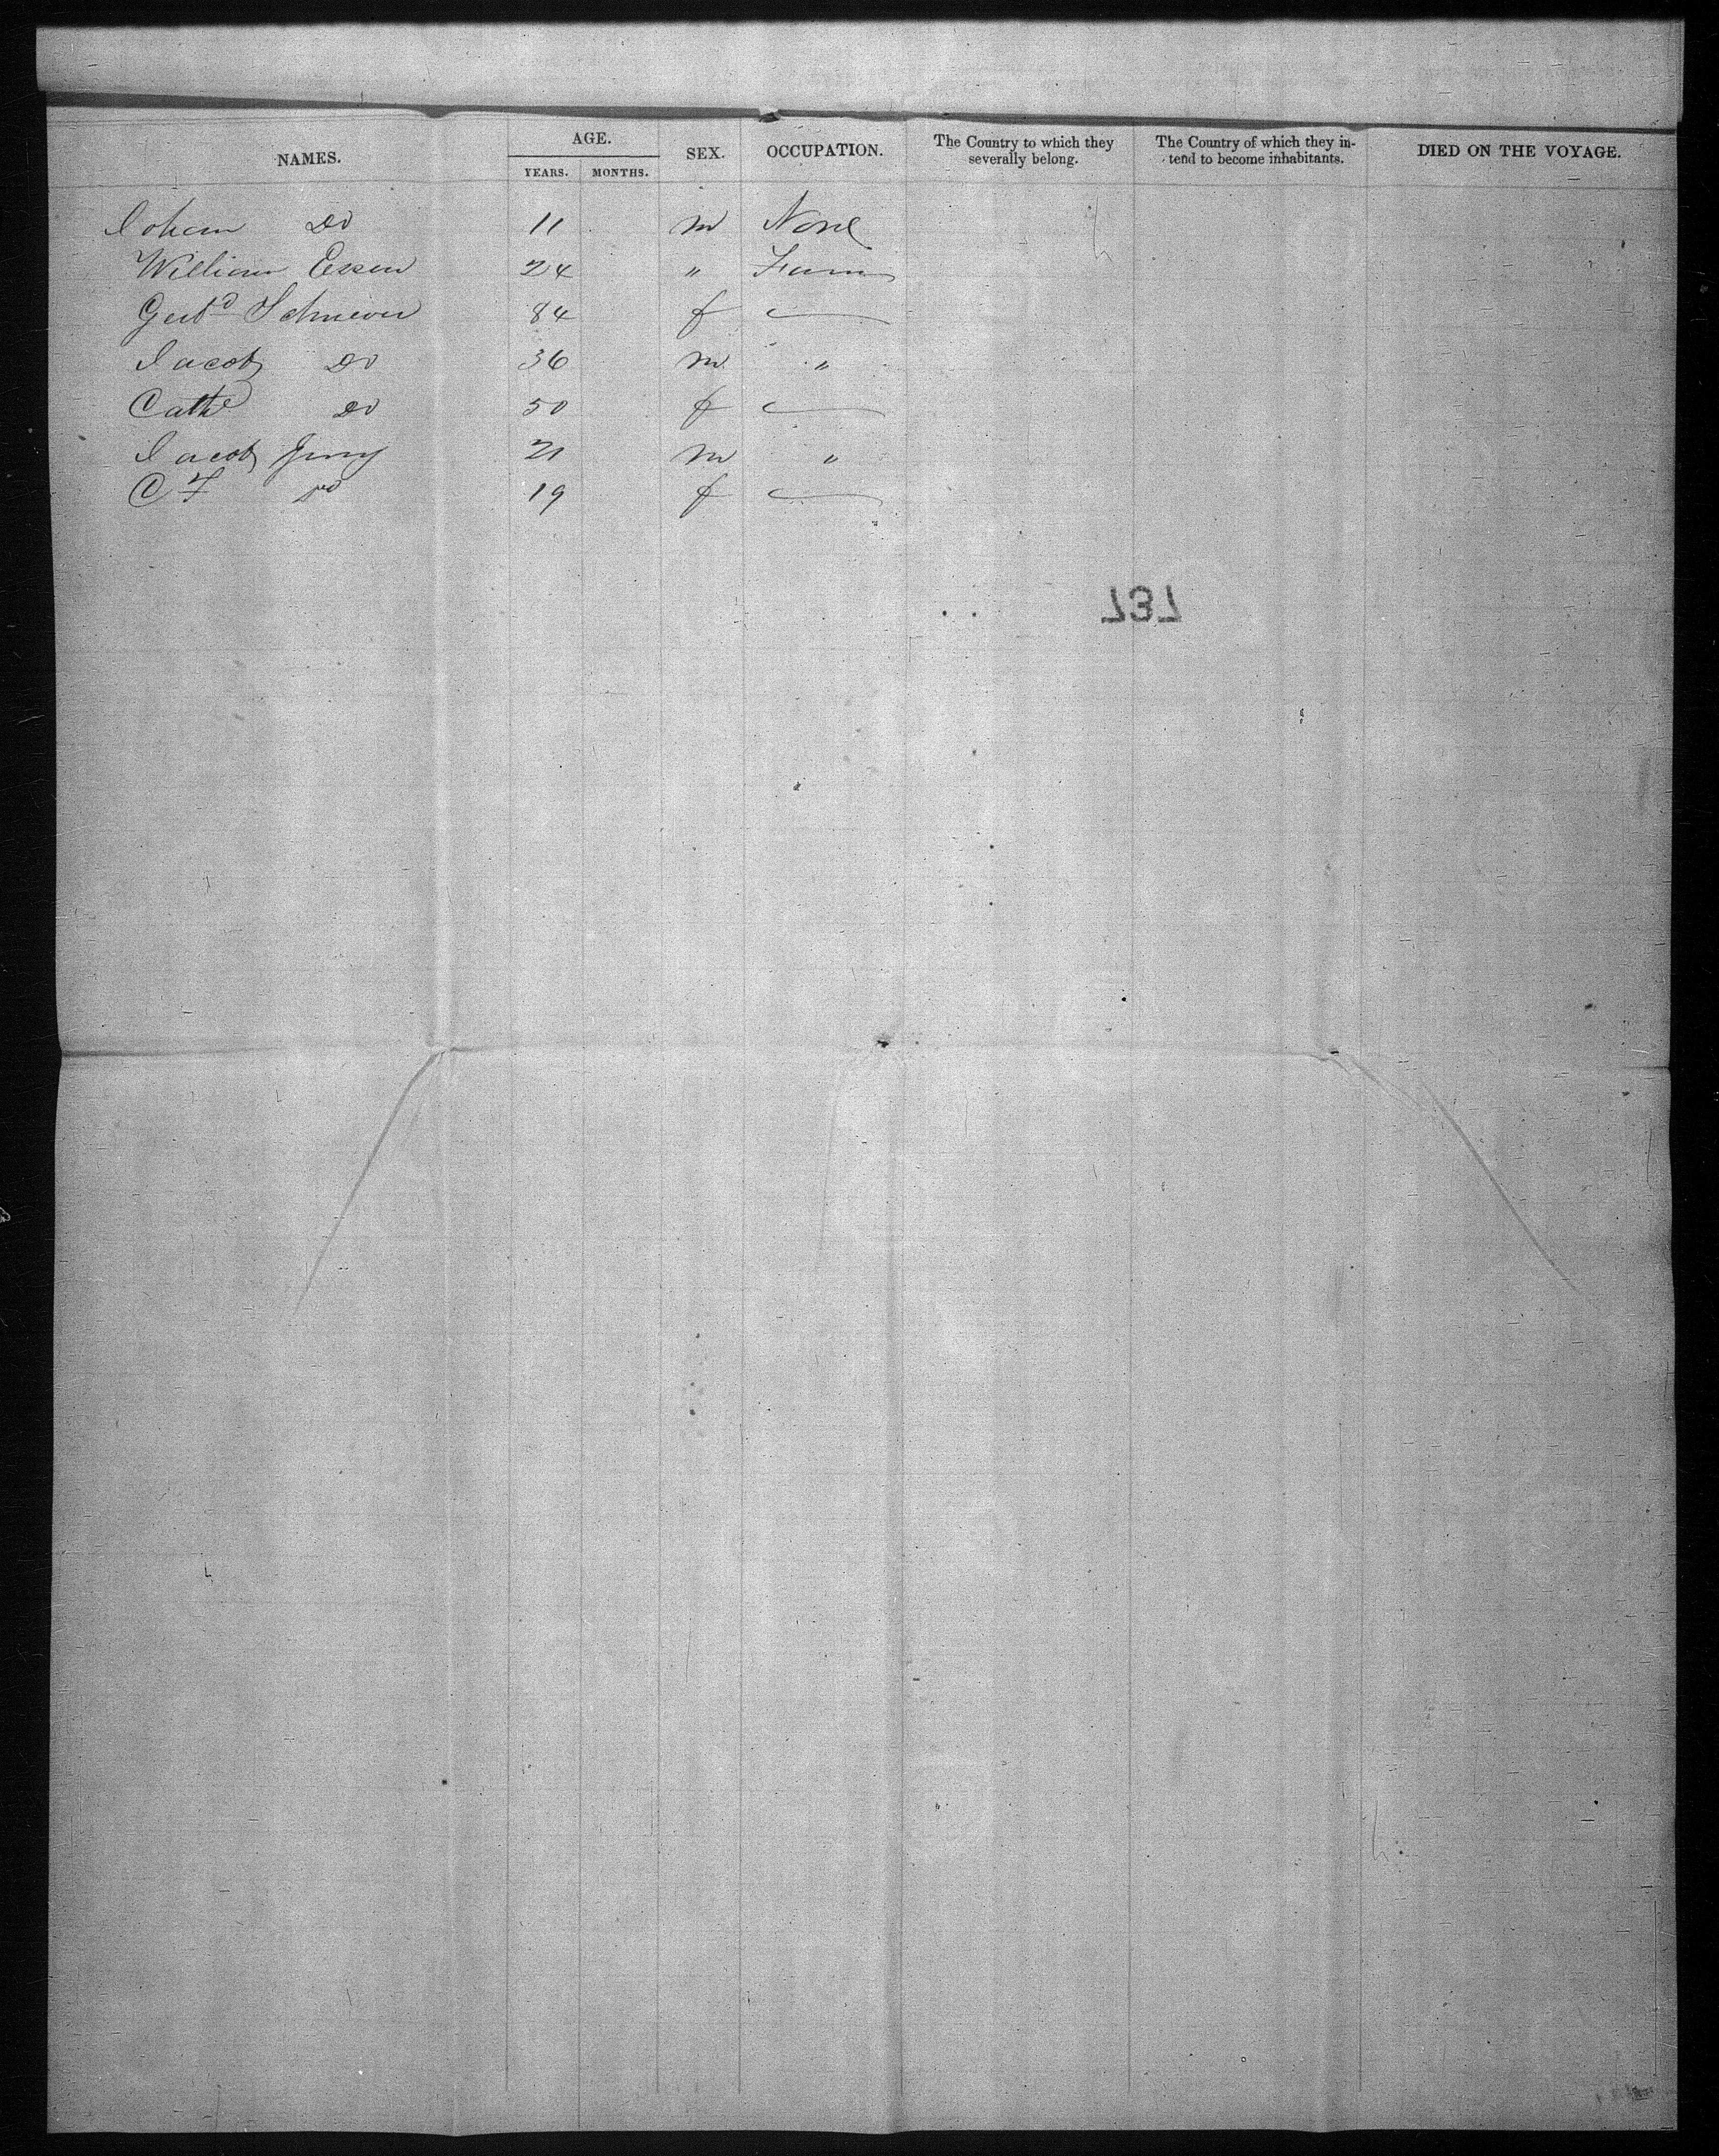 NAMES. AGE. SEX. OCCUPATION. The Country to which they severally belong. The Country of which they in-tend to become inhabitants. DIED ON THE VOYAGE.
YEARS. MONTHS.
Johan Do 11 m None
William Essen 24 " Farm
Gertd 84 f
Jacob Do 36 m "
Cathe Do 50 f
Jacob Jung 21 m "
C F Do 19 f
737